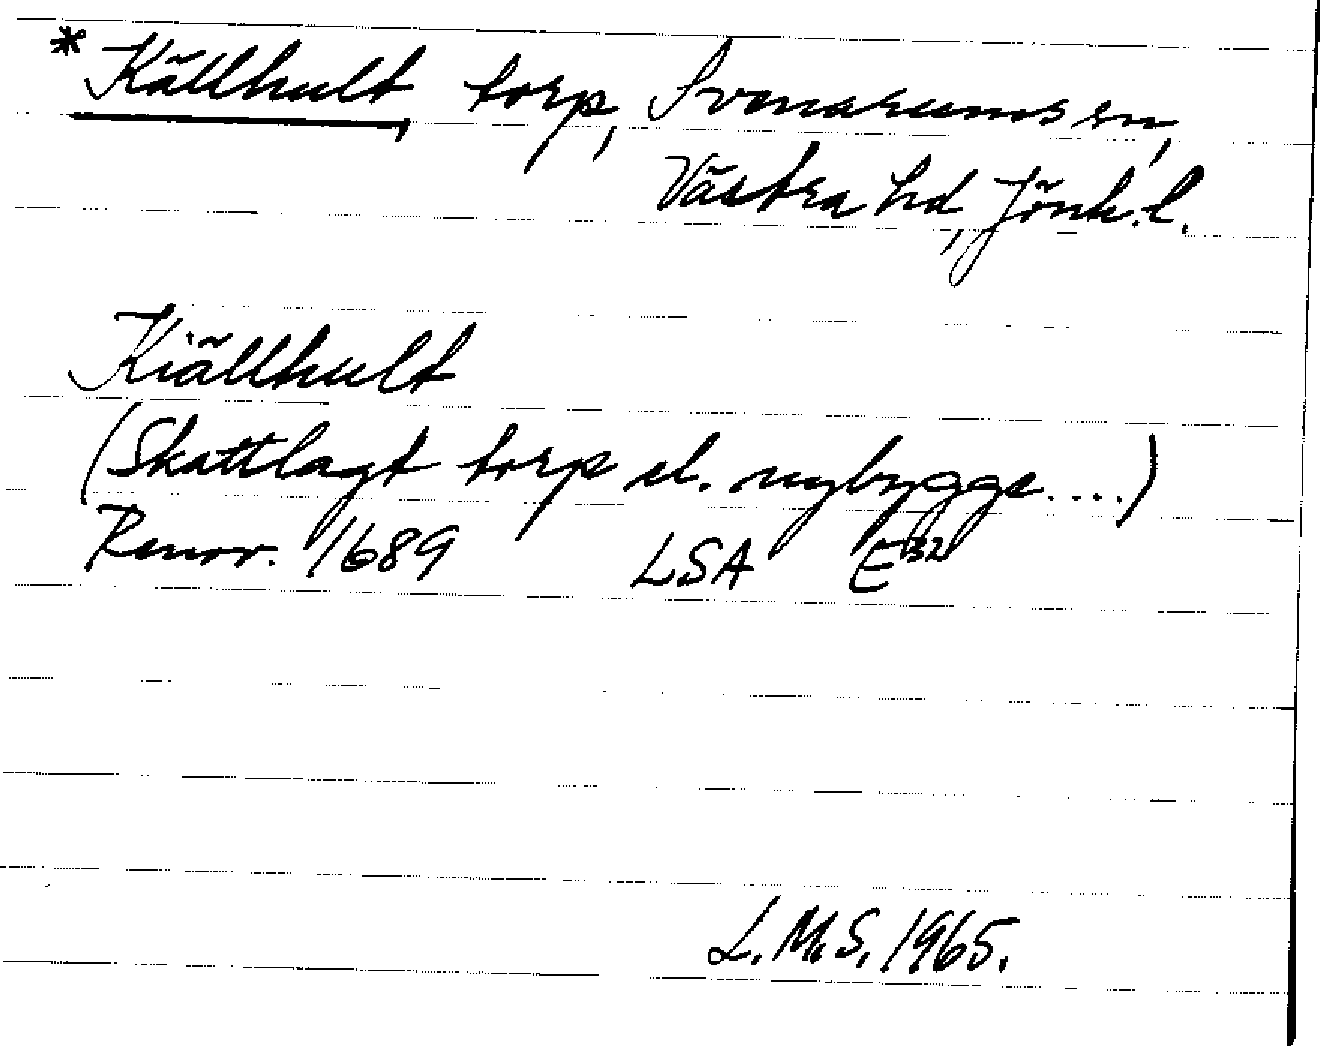 *Källhult, torp, Svenarums sn,
Västra hd, Jönk. l.
Kiällhult
(Skattlagt torp el. nybygge....)
Renov. 1689 LSA E32
L.M.S. 1965.